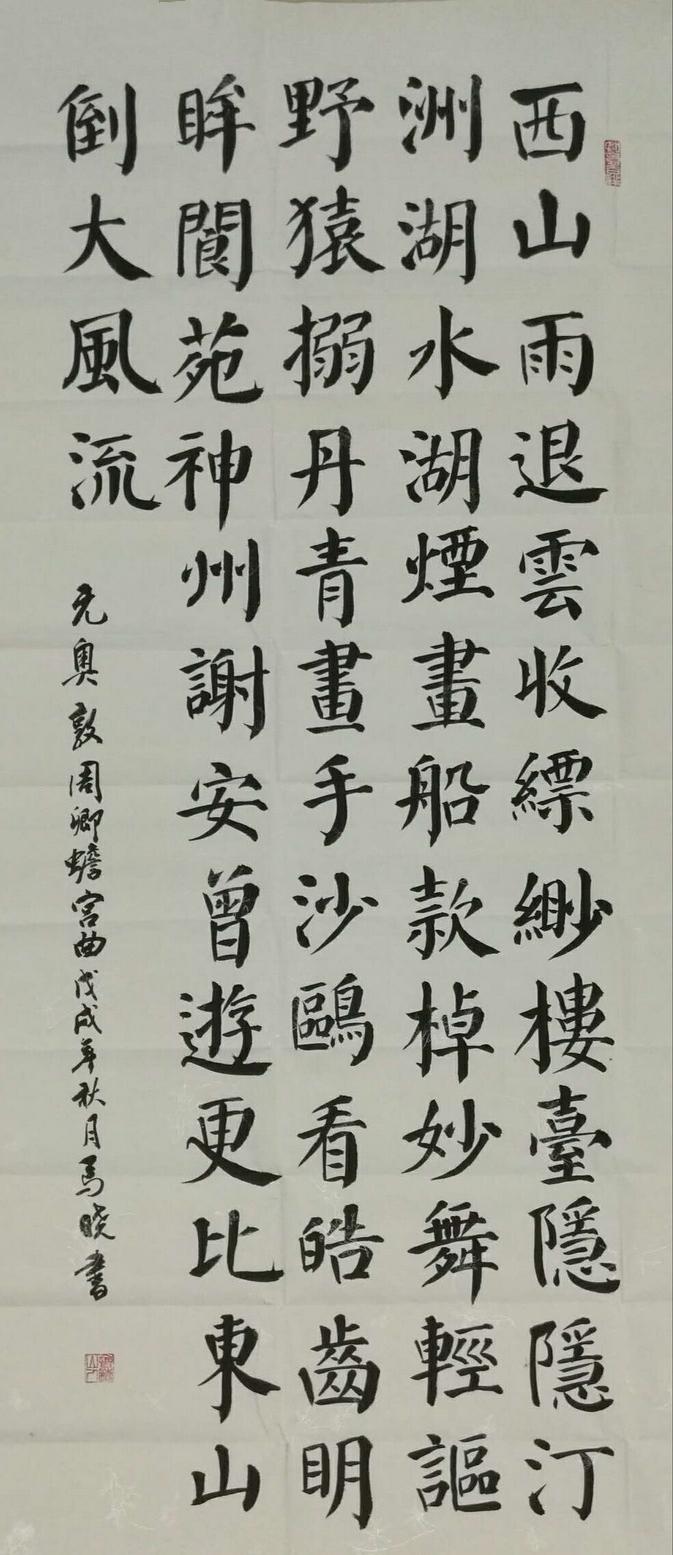 西山雨退雲收縹緲樓臺隱隱汀
洲湖水湖煙畫船款棹妙舞輕謳
野猿搦丹青畫手沙鷗看皓齒明
眸閬苑神州謝安曾遊更比東山
倒大風流
元奧敦周卿蟾宮曲戊戌年秋月馬曉書